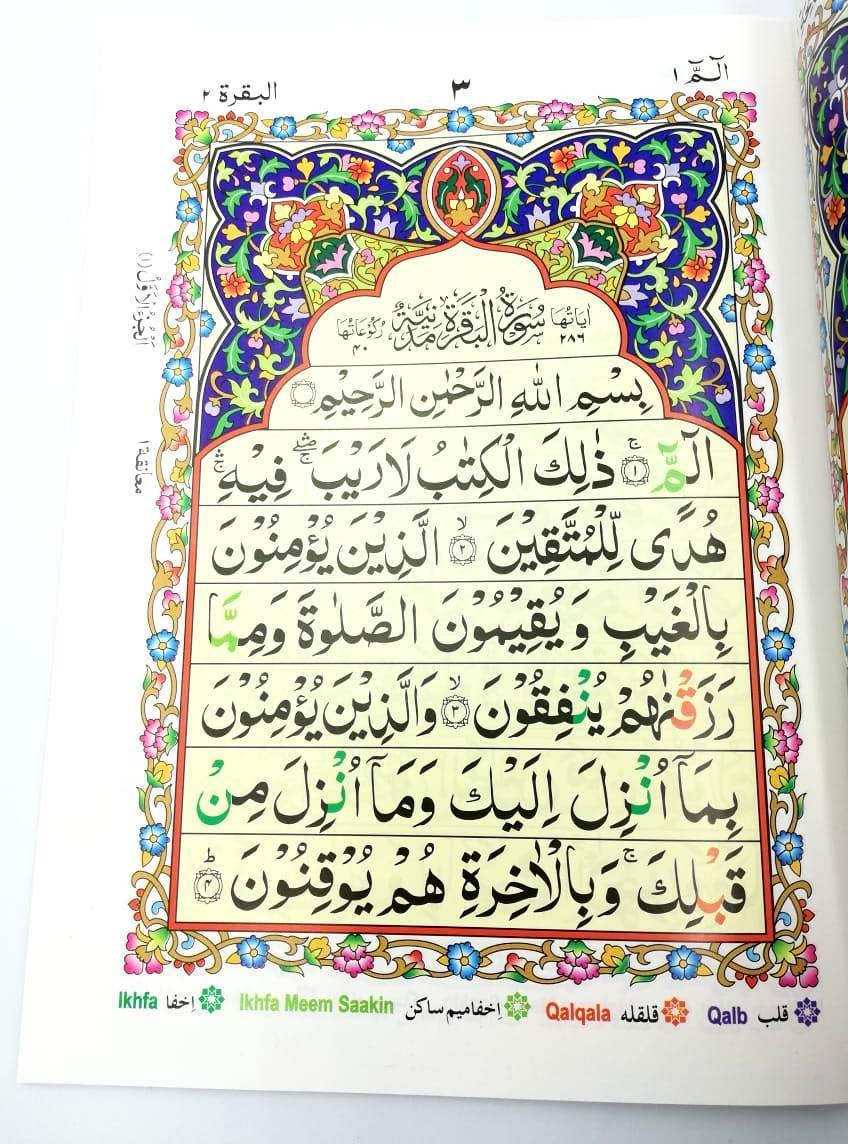 الٓمّٓ ١
٣
البقرة ٢
اٰيَاتُهَا ٢٨٦ سُوْرَةُ الْبَقَرَةِ مَدَنِيَّةٌ رُكُوْعَاتُهَا ٤٠
بِسْمِ اللّٰهِ الرَّحْمٰنِ الرَّحِيْمِ
الٓمّٓ ۚ﴿١﴾ ذٰلِكَ الْكِتٰبُ لَا رَيْبَ ۛۖۚ فِيْهِ ۛۚ
هُدًى لِّلْمُتَّقِيْنَ ۙ﴿٢﴾ الَّذِيْنَ يُؤْمِنُوْنَ
بِالْغَيْبِ وَيُقِيْمُوْنَ الصَّلٰوةَ وَمِمَّا
رَزَقْنٰهُمْ يُنْفِقُوْنَ ۙ﴿٣﴾ وَالَّذِيْنَ يُؤْمِنُوْنَ
بِمَآ اُنْزِلَ اِلَيْكَ وَمَآ اُنْزِلَ مِنْ
قَبْلِكَ ۚ وَبِالْاٰخِرَةِ هُمْ يُوْقِنُوْنَ ؕ﴿٤﴾
الجزء الاوّل (١)
معانقة ١
قلب Qalb قلقله Qalqala اِخفاميم ساكن Ikhfa Meem Saakin اِخفا Ikhfa